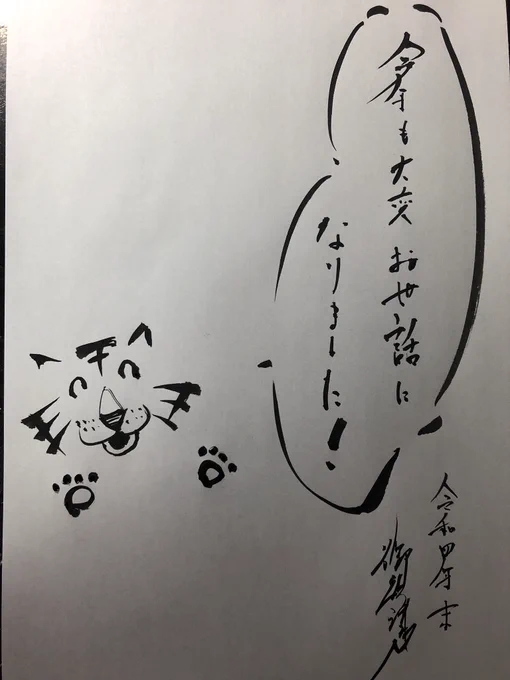 今年も大変お世話に
なりました!
令和四年末